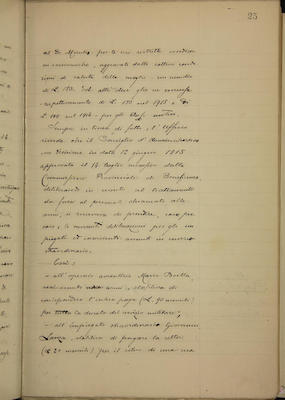 25
al Sr. Mentis, per le sue ristrette condizioni
economiche, aggravate dalle cattive condi-
zioni di salute della moglie, un sussidio
di L. 150. Ed altri due gli
rispettivamente di L. 150 nel 1915 e di
L. 100 nel 1916 - per gli stessi motivi.
Sempre in linea di fatto, l'Ufficio
ricorda che il Consiglio d'Amministrazione
con decisione in data 12 giugno 1915
approvata il 14 luglio successivo dalla
Commissione Provinciale di Beneficenza,
deliberando in merito al trattamento
da farsi al personale chiamato alle
armi, si riservava di prendere, caso per
caso, le convenienti deliberazioni per gli im-
piegati ed inservienti assunti in servizio
straordinario.
Così:
- all'operaio Mario
richiamato alle armi, stabiliva di
corrispondere l'intera paga (L. 90 mensili)
per tutta la durata del servizio militare;
- all'impiegato straordinario Giovanni
Lanza, stabiliva di pagare la retta
(L. 20 mensili) per il ritiro di una sua